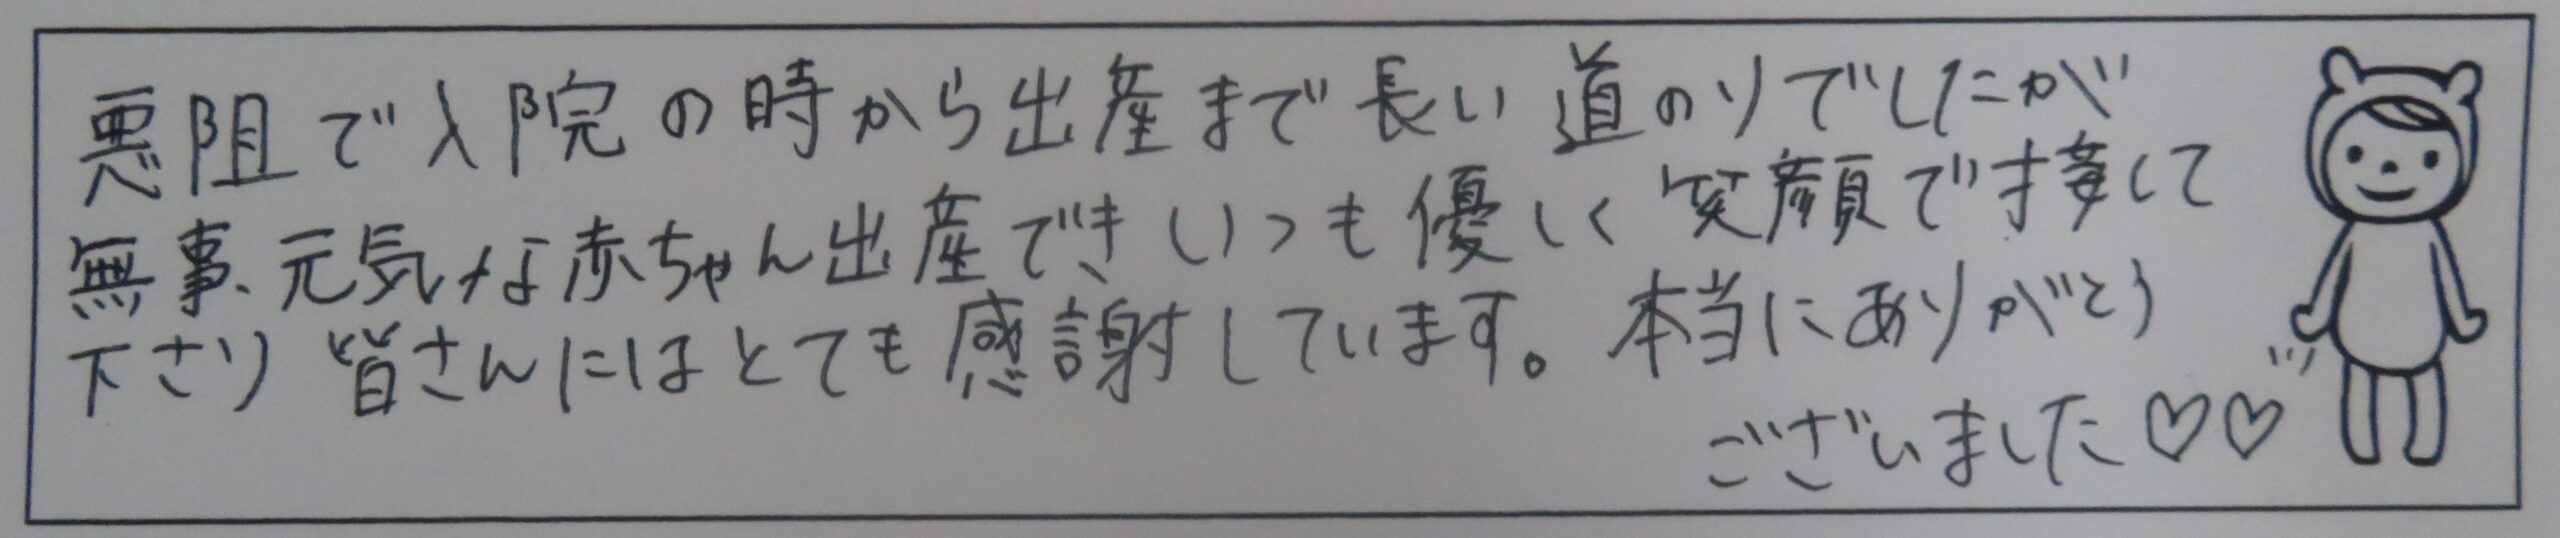 悪阻で入院の時から出産まで長い道のりでしたが
無事、元気な赤ちゃん出産できいつも優しく笑顔で接して
下さり皆さんにはとても感謝しています。本当にありがとう
ございました♡♡